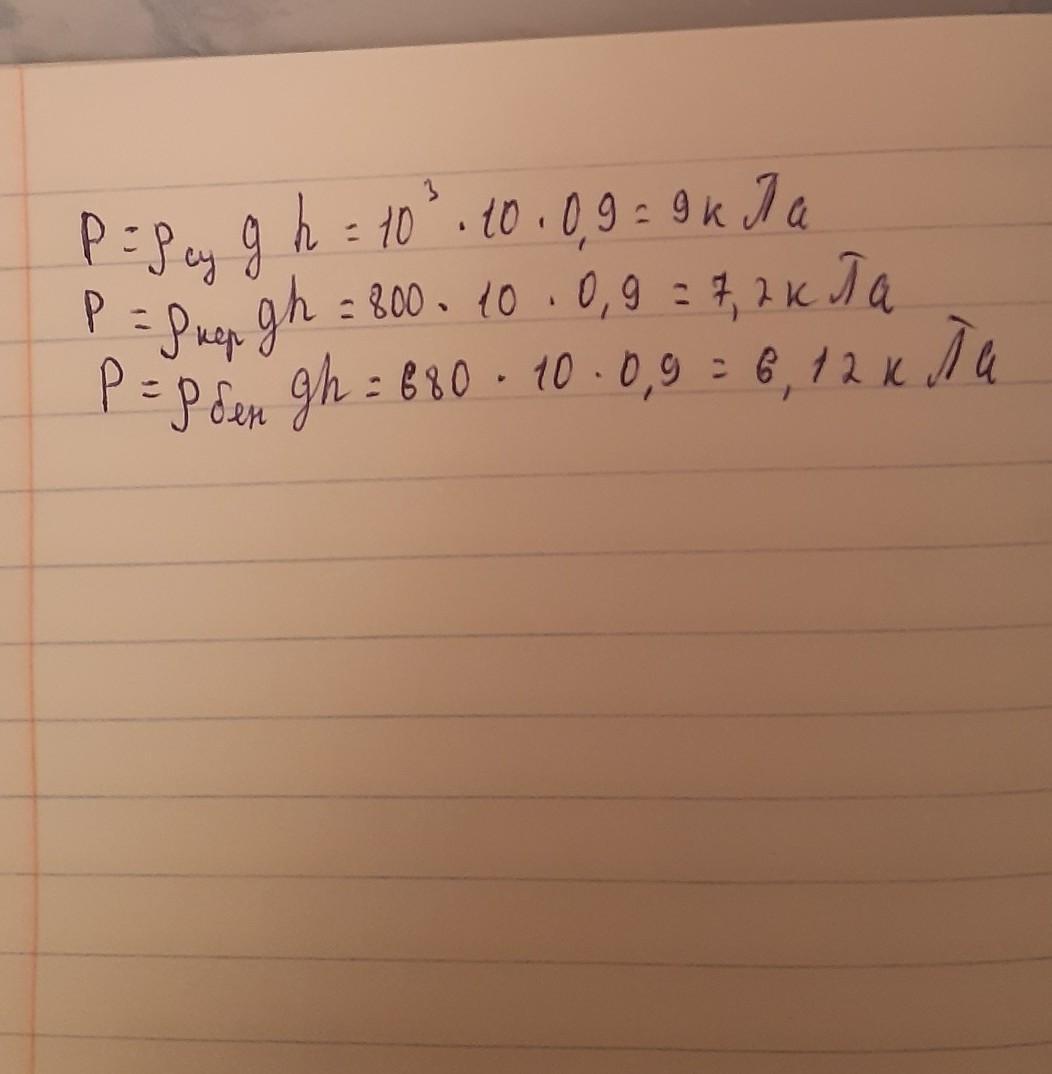 P = ρсу g h = 10³ · 10 · 0,9 = 9 к Па
P = ρкер gh = 800 · 10 · 0,9 = 7,2 к Па
P = ρбен gh = 680 · 10 · 0,9 = 6,12 к Па